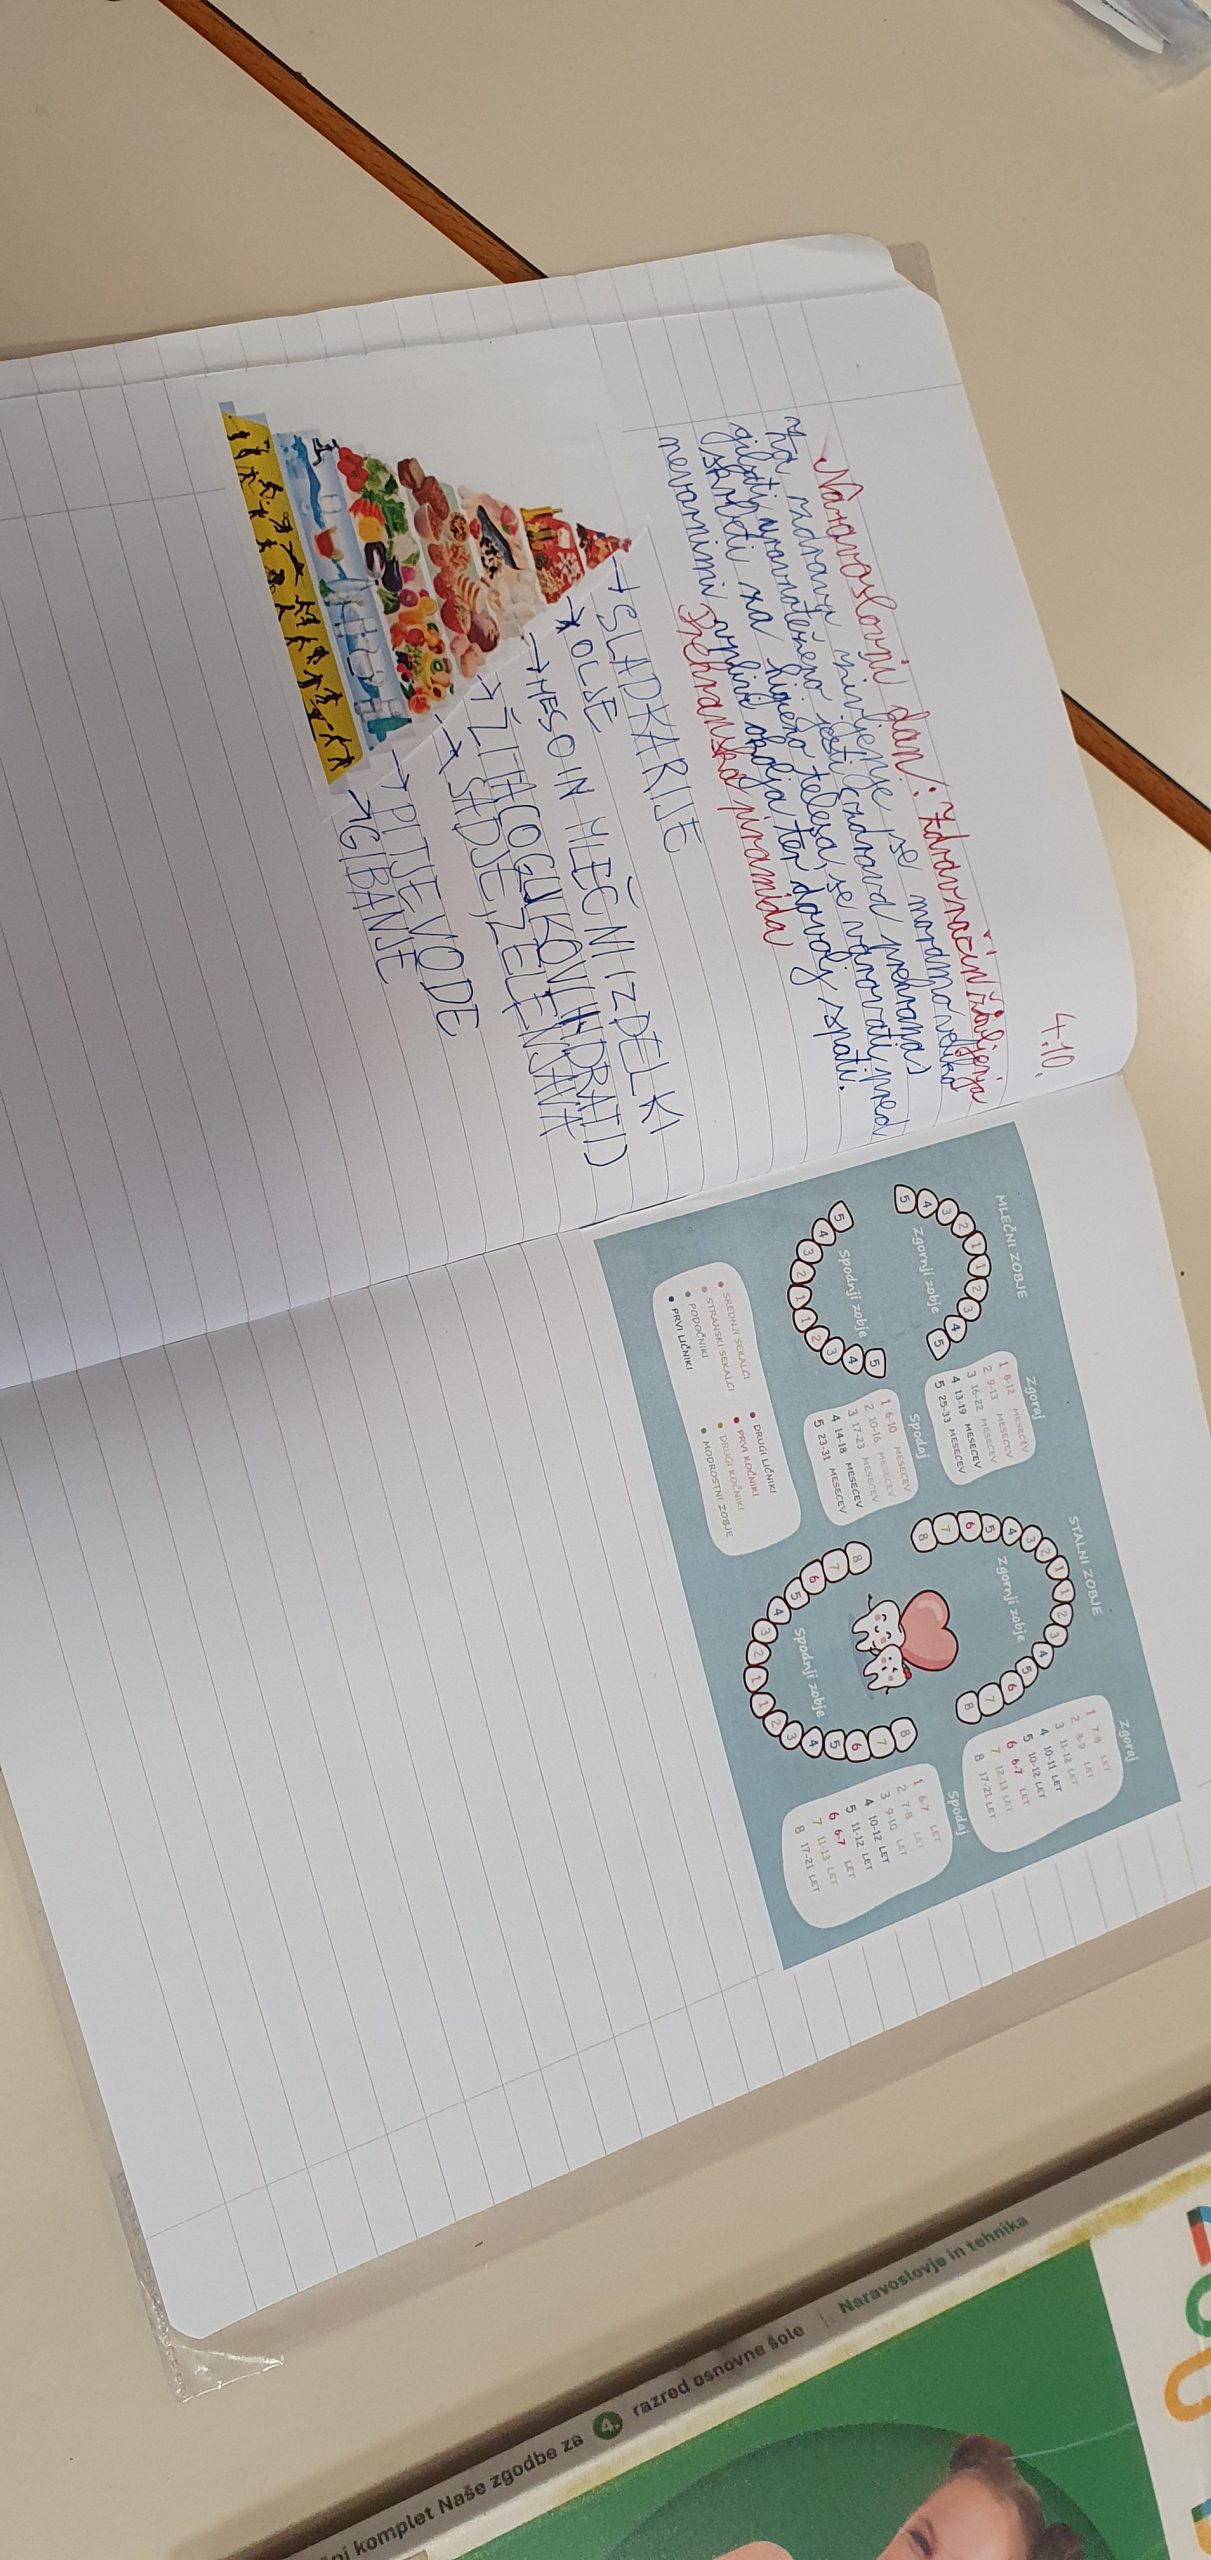 4.10.
Naravoslovni dan: Zdrav način življenja
Za zdravo življenje se moramo veliko
gibati, uravnoteženo jesti zdravo prehrano,
skrbeti za higieno telesa, se varovati pred
nevarnimi vplivi okolja ter dovolj spati.
Prehranska piramida
→ SLADKARIJE
→ OLJE
→ MESO IN MLEČNI IZDELKI
→ ŽITA
→ SADJE, ZELENJAVA
→ PITJE VODE
→ GIBANJE
MLEČNI ZOBJE
Zgornji zobje
5 4 3 2 1 1 2 3 4 5
Zgoraj
1 8-12 MESECEV
2 9-13 MESECEV
3 16-22 MESECEV
4 13-19 MESECEV
5 25-33 MESECEV
Spodnji zobje
5 4 3 2 1 1 2 3 4 5
Spodaj
1 6-10 MESECEV
2 10-16 MESECEV
3 17-23 MESECEV
4 14-18 MESECEV
5 23-31 MESECEV
SREDNJI SEKALCI
STRANSKI SEKALCI
PODOČNIKI
PRVI LIČNIKI
DRUGI LIČNIKI
PRVI KOČNIKI
DRUGI KOČNIKI
MODROSTNI ZOBJE
STALNI ZOBJE
Zgornji zobje
8 7 6 5 4 3 2 1 1 2 3 4 5 6 7 8
Zgoraj
1 7-8 LET
2 8-9 LET
3 11-12 LET
4 10-11 LET
5 10-12 LET
6 6-7 LET
7 12-13 LET
8 17-21 LET
Spodnji zobje
8 7 6 5 4 3 2 1 1 2 3 4 5 6 7 8
Spodaj
1 6-7 LET
2 7-8 LET
3 9-10 LET
4 10-12 LET
5 11-12 LET
6 6-7 LET
7 11-13 LET
8 17-21 LET
komplet Naše zgodbe za 4. razred osnovne šole | Naravoslovje in tehnika